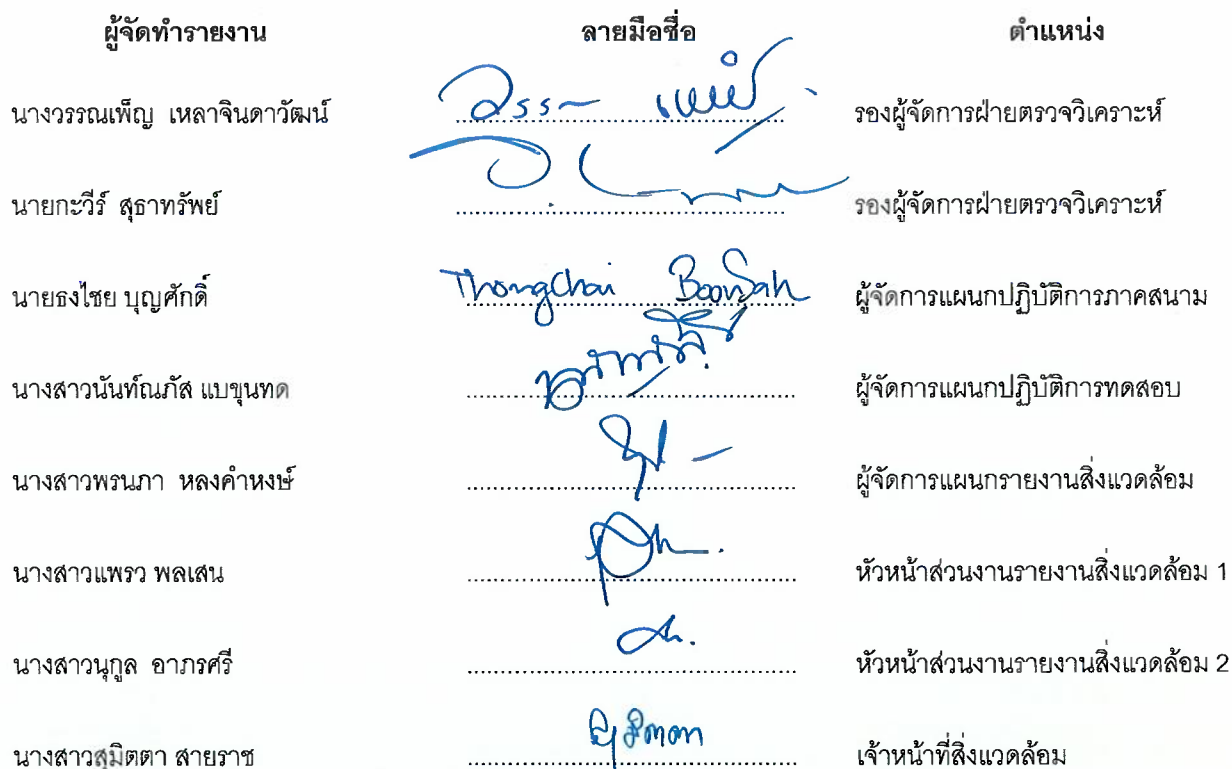 ผู้จัดทำรายงาน ลายมือชื่อ ตำแหน่ง
นางวรรณเพ็ญ เหลาจินดาวัฒน์ รองผู้จัดการฝ่ายตรวจวิเคราะห์
นายกะวีร์ สุธาทรัพย์ รองผู้จัดการฝ่ายตรวจวิเคราะห์
นายธงไชย บุญศักดิ์ Thongchai BoonSak ผู้จัดการแผนกปฏิบัติการภาคสนาม
นางสาวนันท์ณภัส แบขุนทด ผู้จัดการแผนกปฏิบัติการทดสอบ
นางสาวพรนภา หลงคำหงษ์ ผู้จัดการแผนกรายงานสิ่งแวดล้อม
นางสาวแพรว พลเสน หัวหน้าส่วนงานรายงานสิ่งแวดล้อม 1
นางสาวนุกูล อาภรศรี หัวหน้าส่วนงานรายงานสิ่งแวดล้อม 2
นางสาวสุมิตตา สายราช เจ้าหน้าที่สิ่งแวดล้อม